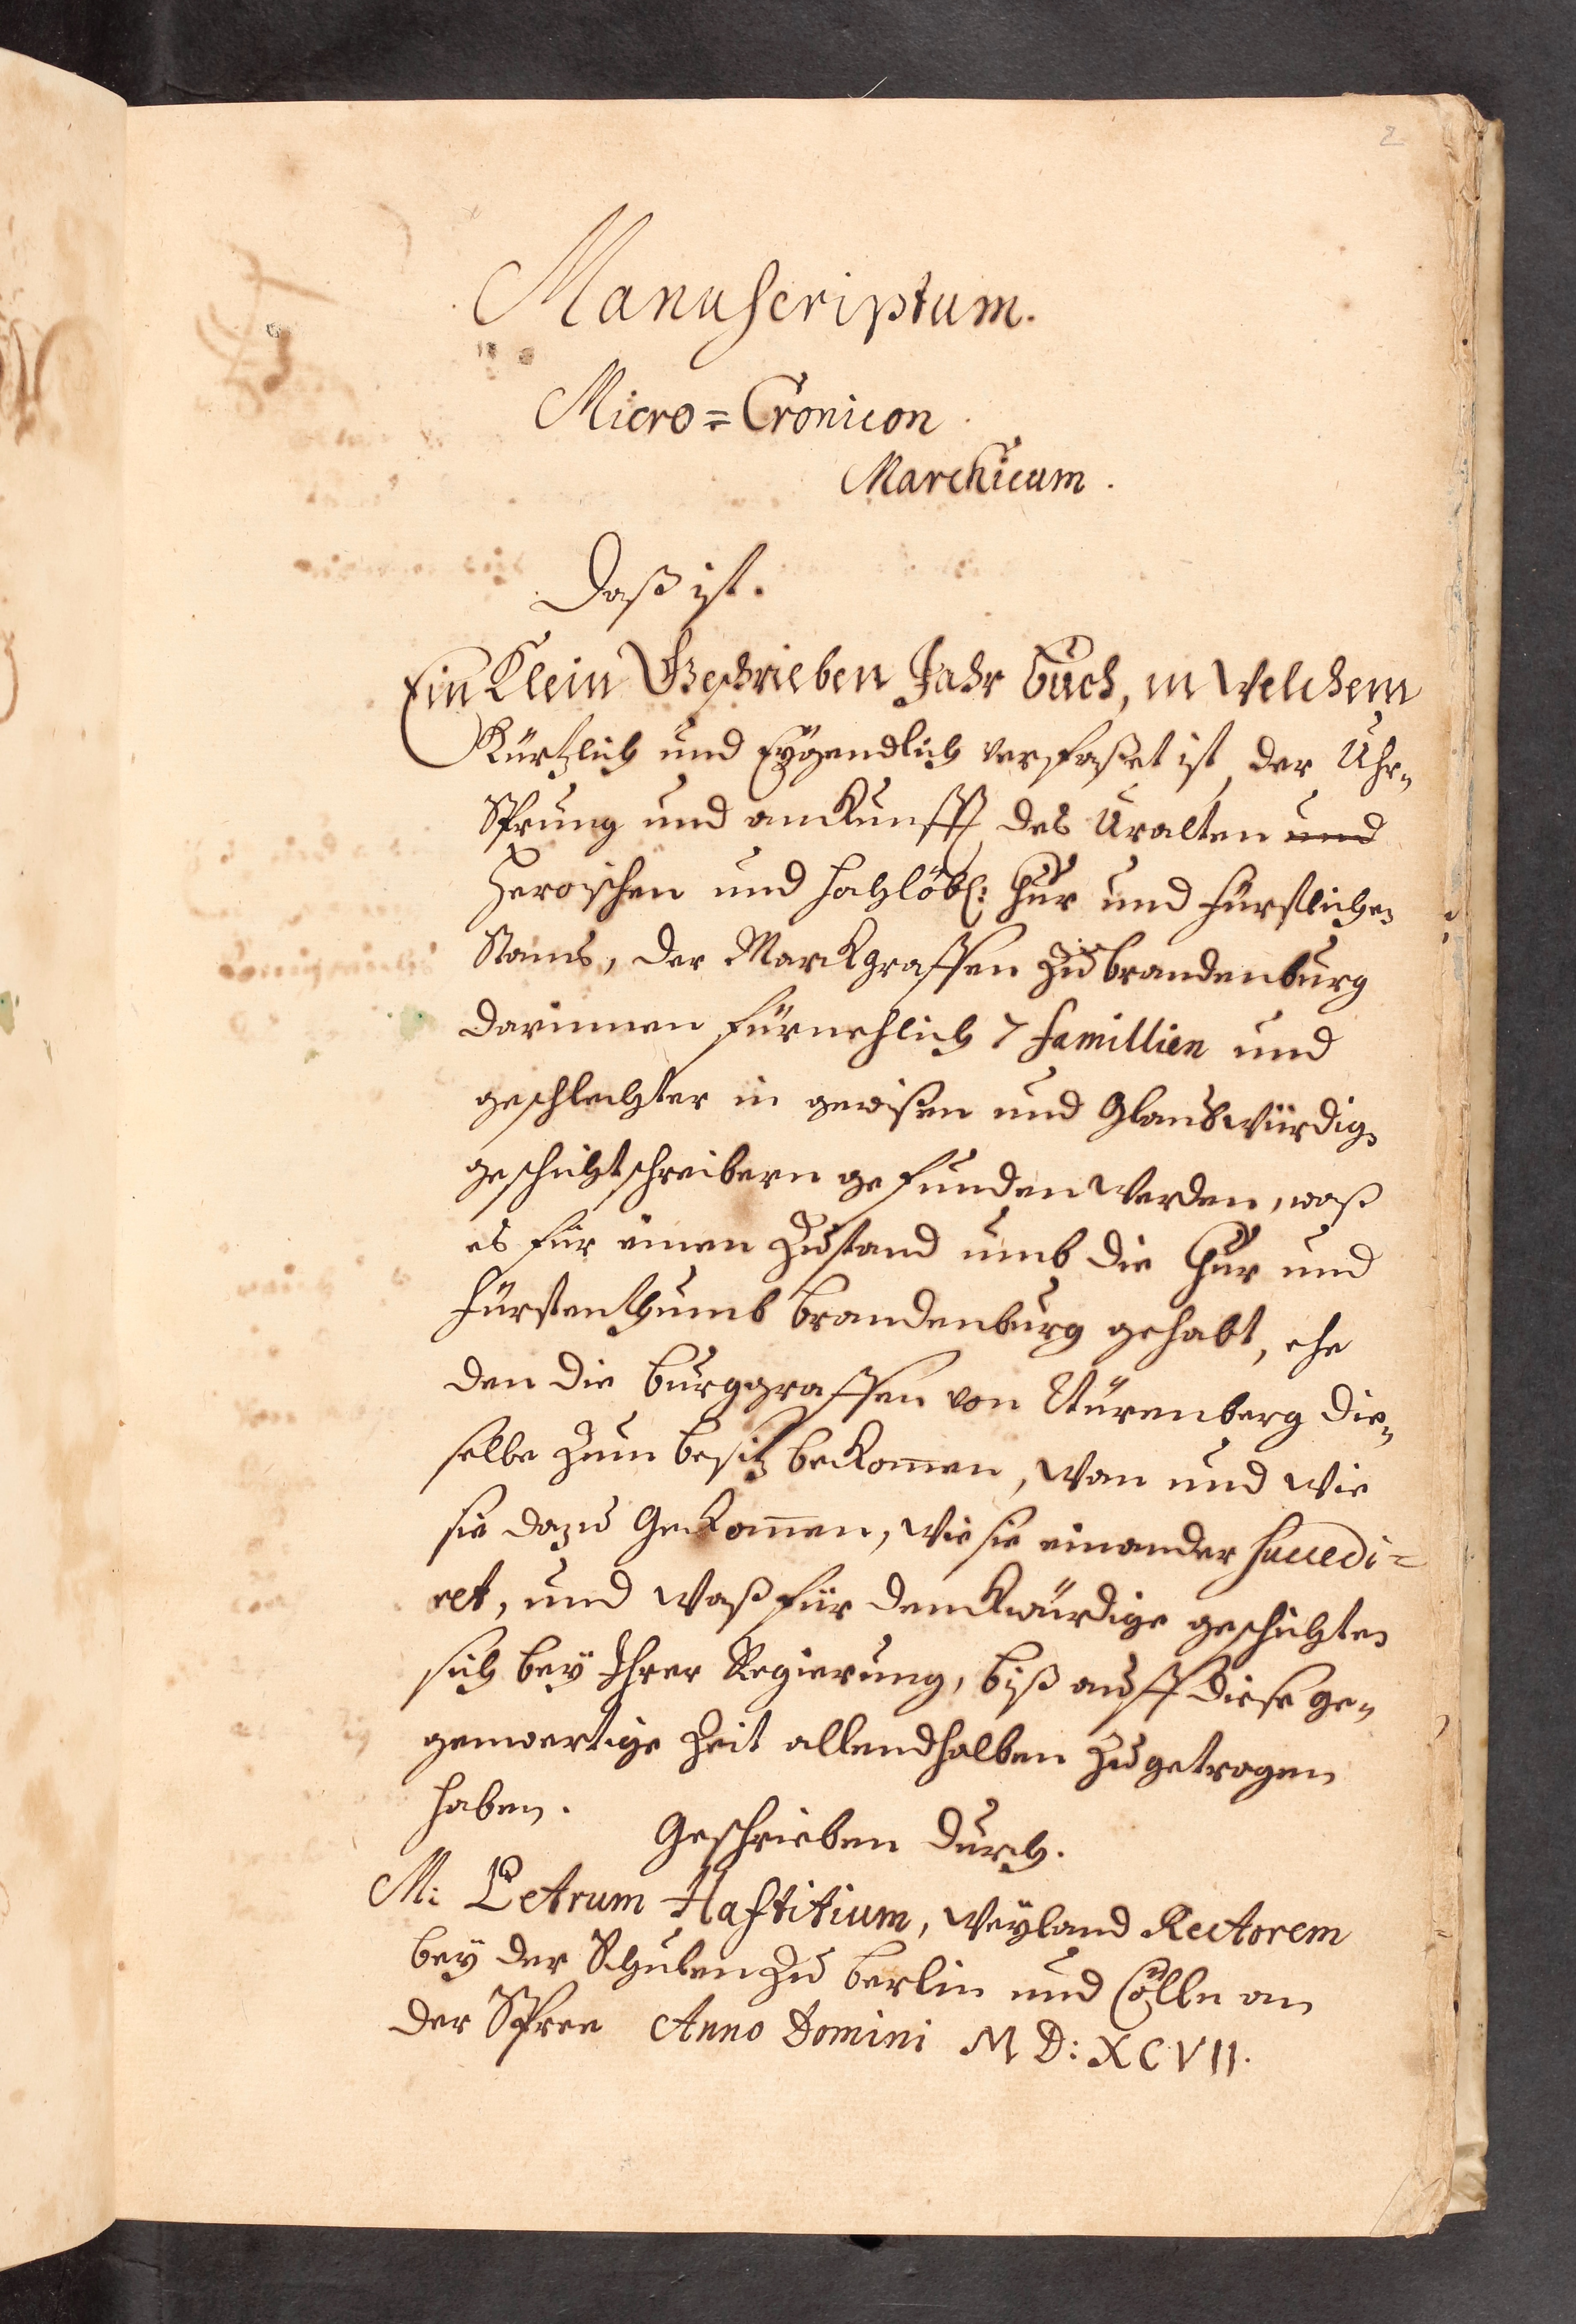 2
Manuscriptum.
Micro=Cronicon
Marchicum.
Daß ist.
Ein Klein Geschrieben Jahr buch, in Welchem
Kürtzlich und Eÿgendlich verfaßet ist, der Uhr-
Sprung und anKunfft des Uralten und
Heroischen und hochlöbl: Chur und Fürstlichen
Stams, der Marckgraffen Zu brandenburg
darinnen fürnehlich 7 famillien und
geschlechter in gewißen und Glaubwürdig.
geschichtschreibern gefunden werden, waß
es für einen Zustand umb die Chur und
Fürstenthumb brandenburg gehabt, ehe
den die burggraffen von Nürenberg die-
selbe Zum besitz beKom̄en, Wan und Wie
sie dazu GeKom̄en, Wie sie einander succedi=
ret, und Waß für denckwürdige geschichten
sich beÿ Ihrer Regierung, biß auff diese ge-
genwertige Zeit allendhalben Zugetragen
haben.
Geschrieben durch.
M: Petrum Haftitium, Weÿland Rectorem
beÿ der Schulen Zu berlin und Cölln an
der Spree Anno Domini M D: XC VII.